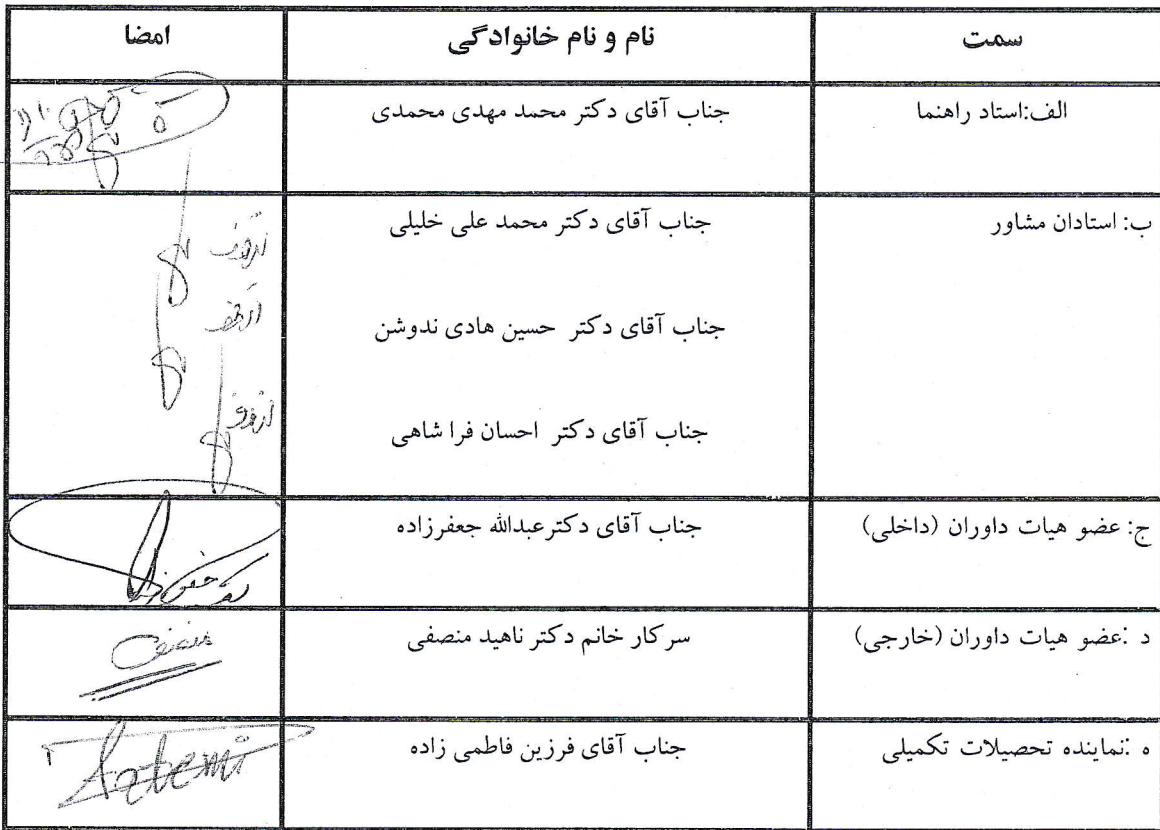 سمت	نام و نام خانوادگی	امضا
الف:استاد راهنما	جناب آقای دکتر محمد مهدی محمدی
ب: استادان مشاور	جناب آقای دکتر محمد علی خلیلی	از طرف
جناب آقای دکتر حسین هادی ندوشن	از طرف
جناب آقای دکتر احسان فرا شاهی	از طرف
ج: عضو هیات داوران (داخلی)	جناب آقای دکترعبدالله جعفرزاده
د :عضو هیات داوران (خارجی)	سرکار خانم دکتر ناهید منصفی	منصفی
ه :نماینده تحصیلات تکمیلی	جناب آقای فرزین فاطمی زاده